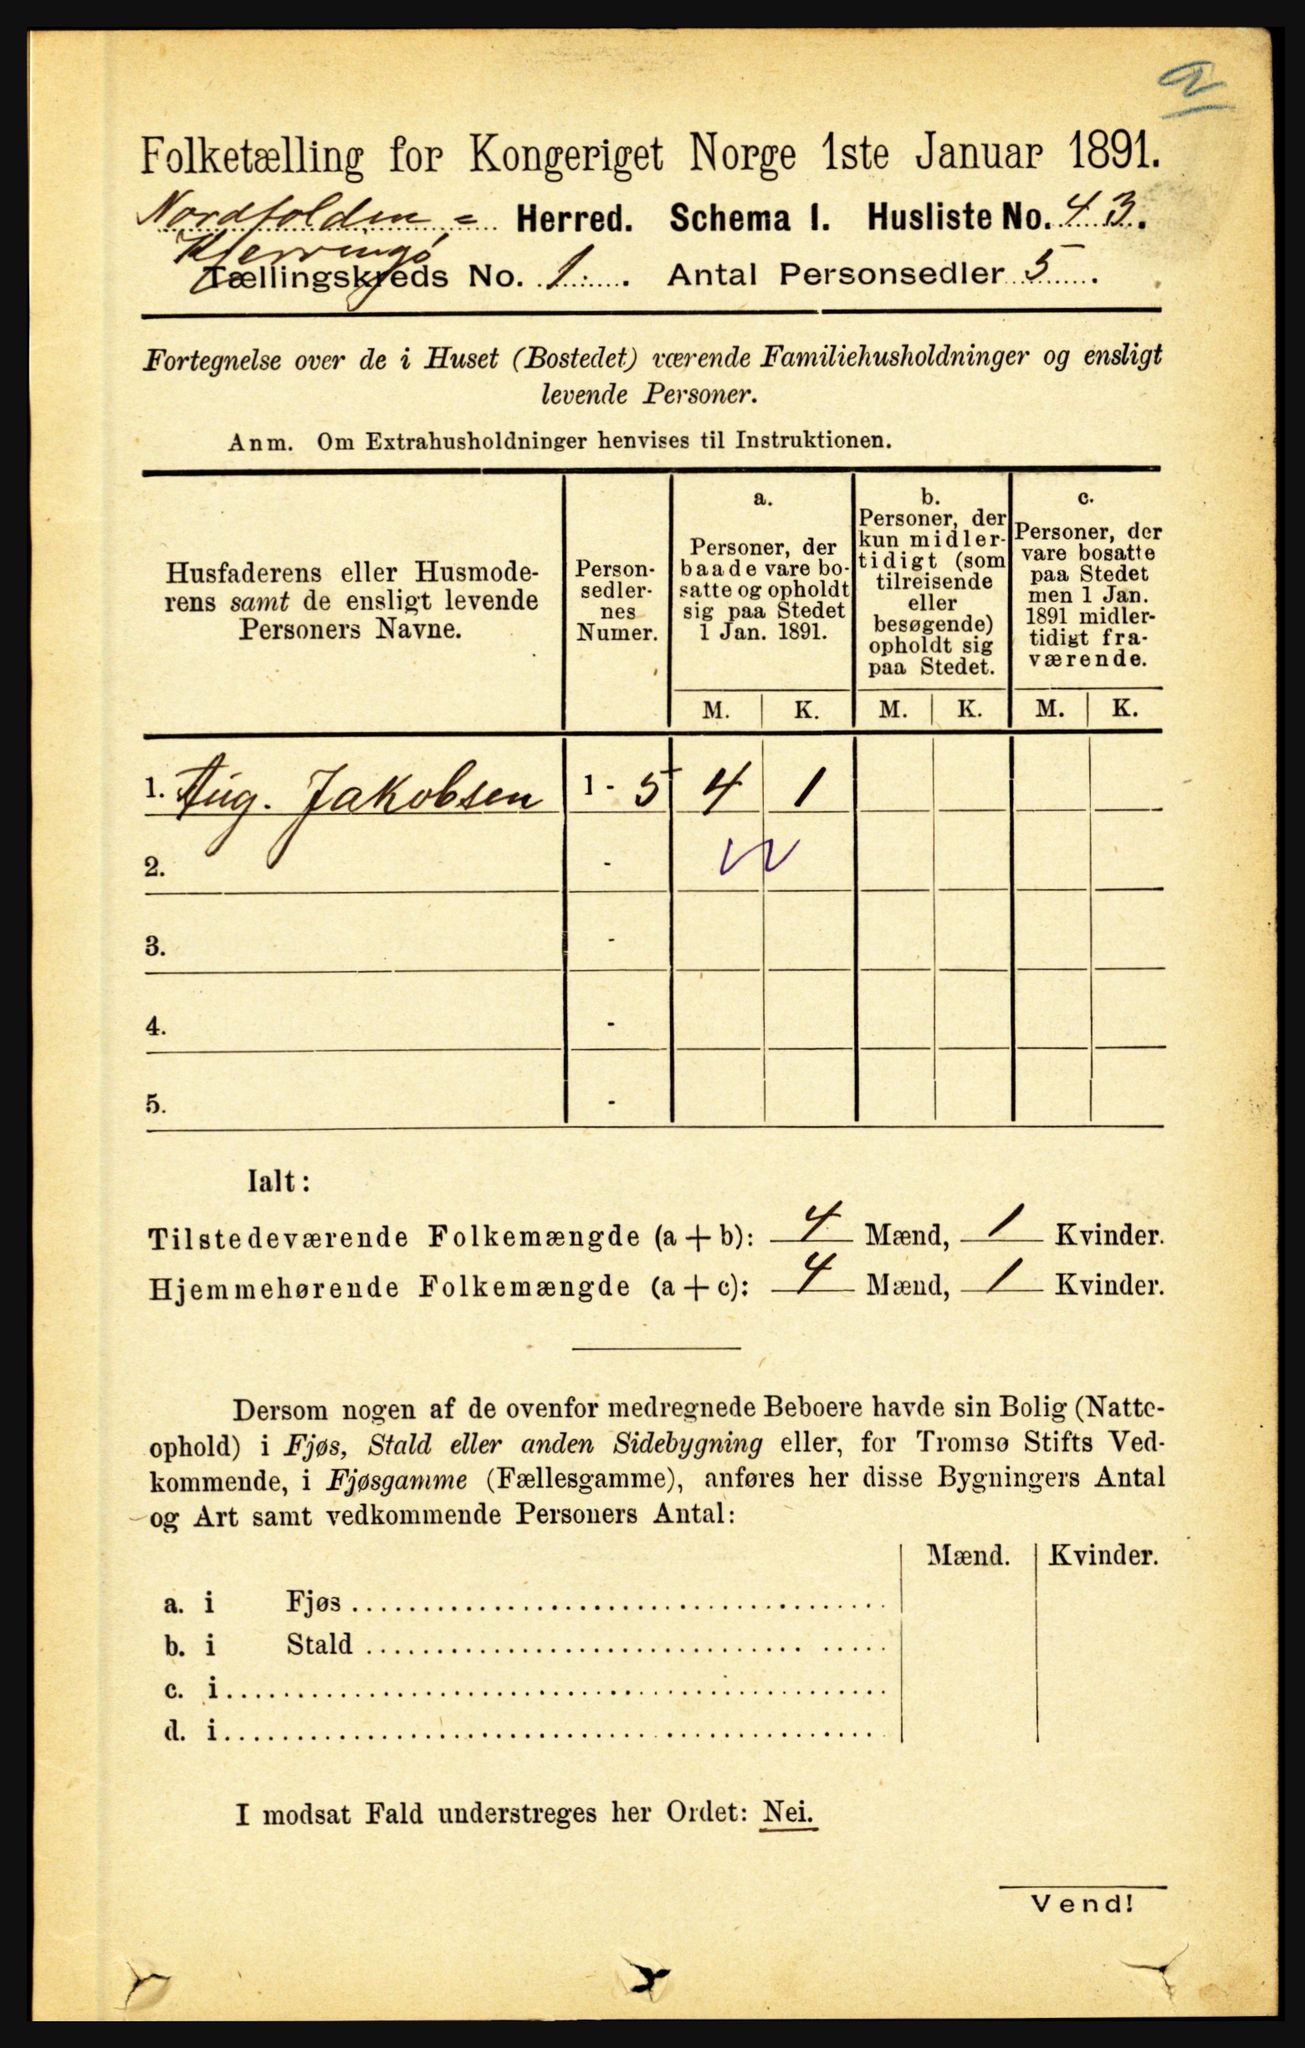 Folketælling for Kongeriget Norge 1ste Januar 1891.
Nordfolden = Herred. Schema I. Husliste No. 43.
Kjerringø
Tællingskreds No. 1. Antal Personsedler 5.
Fortegnelse over de i Huset (Bostedet) værende Familiehusholdninger og ensligt
levende Personer.
Anm. Om Extrahusholdninger henvises til Instruktionen.
Husfaderens eller Husmode-
rens samt de ensligt levende
Personers Navne.
Person-
sedler-
nes
Numer.
a.
Personer, der
baade vare bo-
satte og opholdt
sig paa Stedet
1 Jan. 1891.
b.
Personer, der
kun midler-
tidigt (som
tilreisende
eller
besøgende)
opholdt sig
paa Stedet.
c.
Personer, der
vare bosatte
paa Stedet
men 1 Jan.
1891 midler-
tidigt fra-
værende.
M. K. M. K. M. K.
1. Aug. Jakobsen 1 - 5 4 1
2. -
3. -
4. -
5. -
Ialt:
Tilstedeværende Folkemængde (a + b): 4 Mænd, 1 Kvinder.
Hjemmehørende Folkemængde (a + c): 4 Mænd, 1 Kvinder.
Dersom nogen af de ovenfor medregnede Beboere havde sin Bolig (Natte-
ophold) i Fjøs, Stald eller anden Sidebygning eller, for Tromsø Stifts Ved-
kommende, i Fjøsgamme (Fællesgamme), anføres her disse Bygningers Antal
og Art samt vedkommende Personers Antal:
Mænd. Kvinder.
a. i Fjøs
b. i Stald
c. i
d. i
I modsat Fald understreges her Ordet: Nei.
Vend!